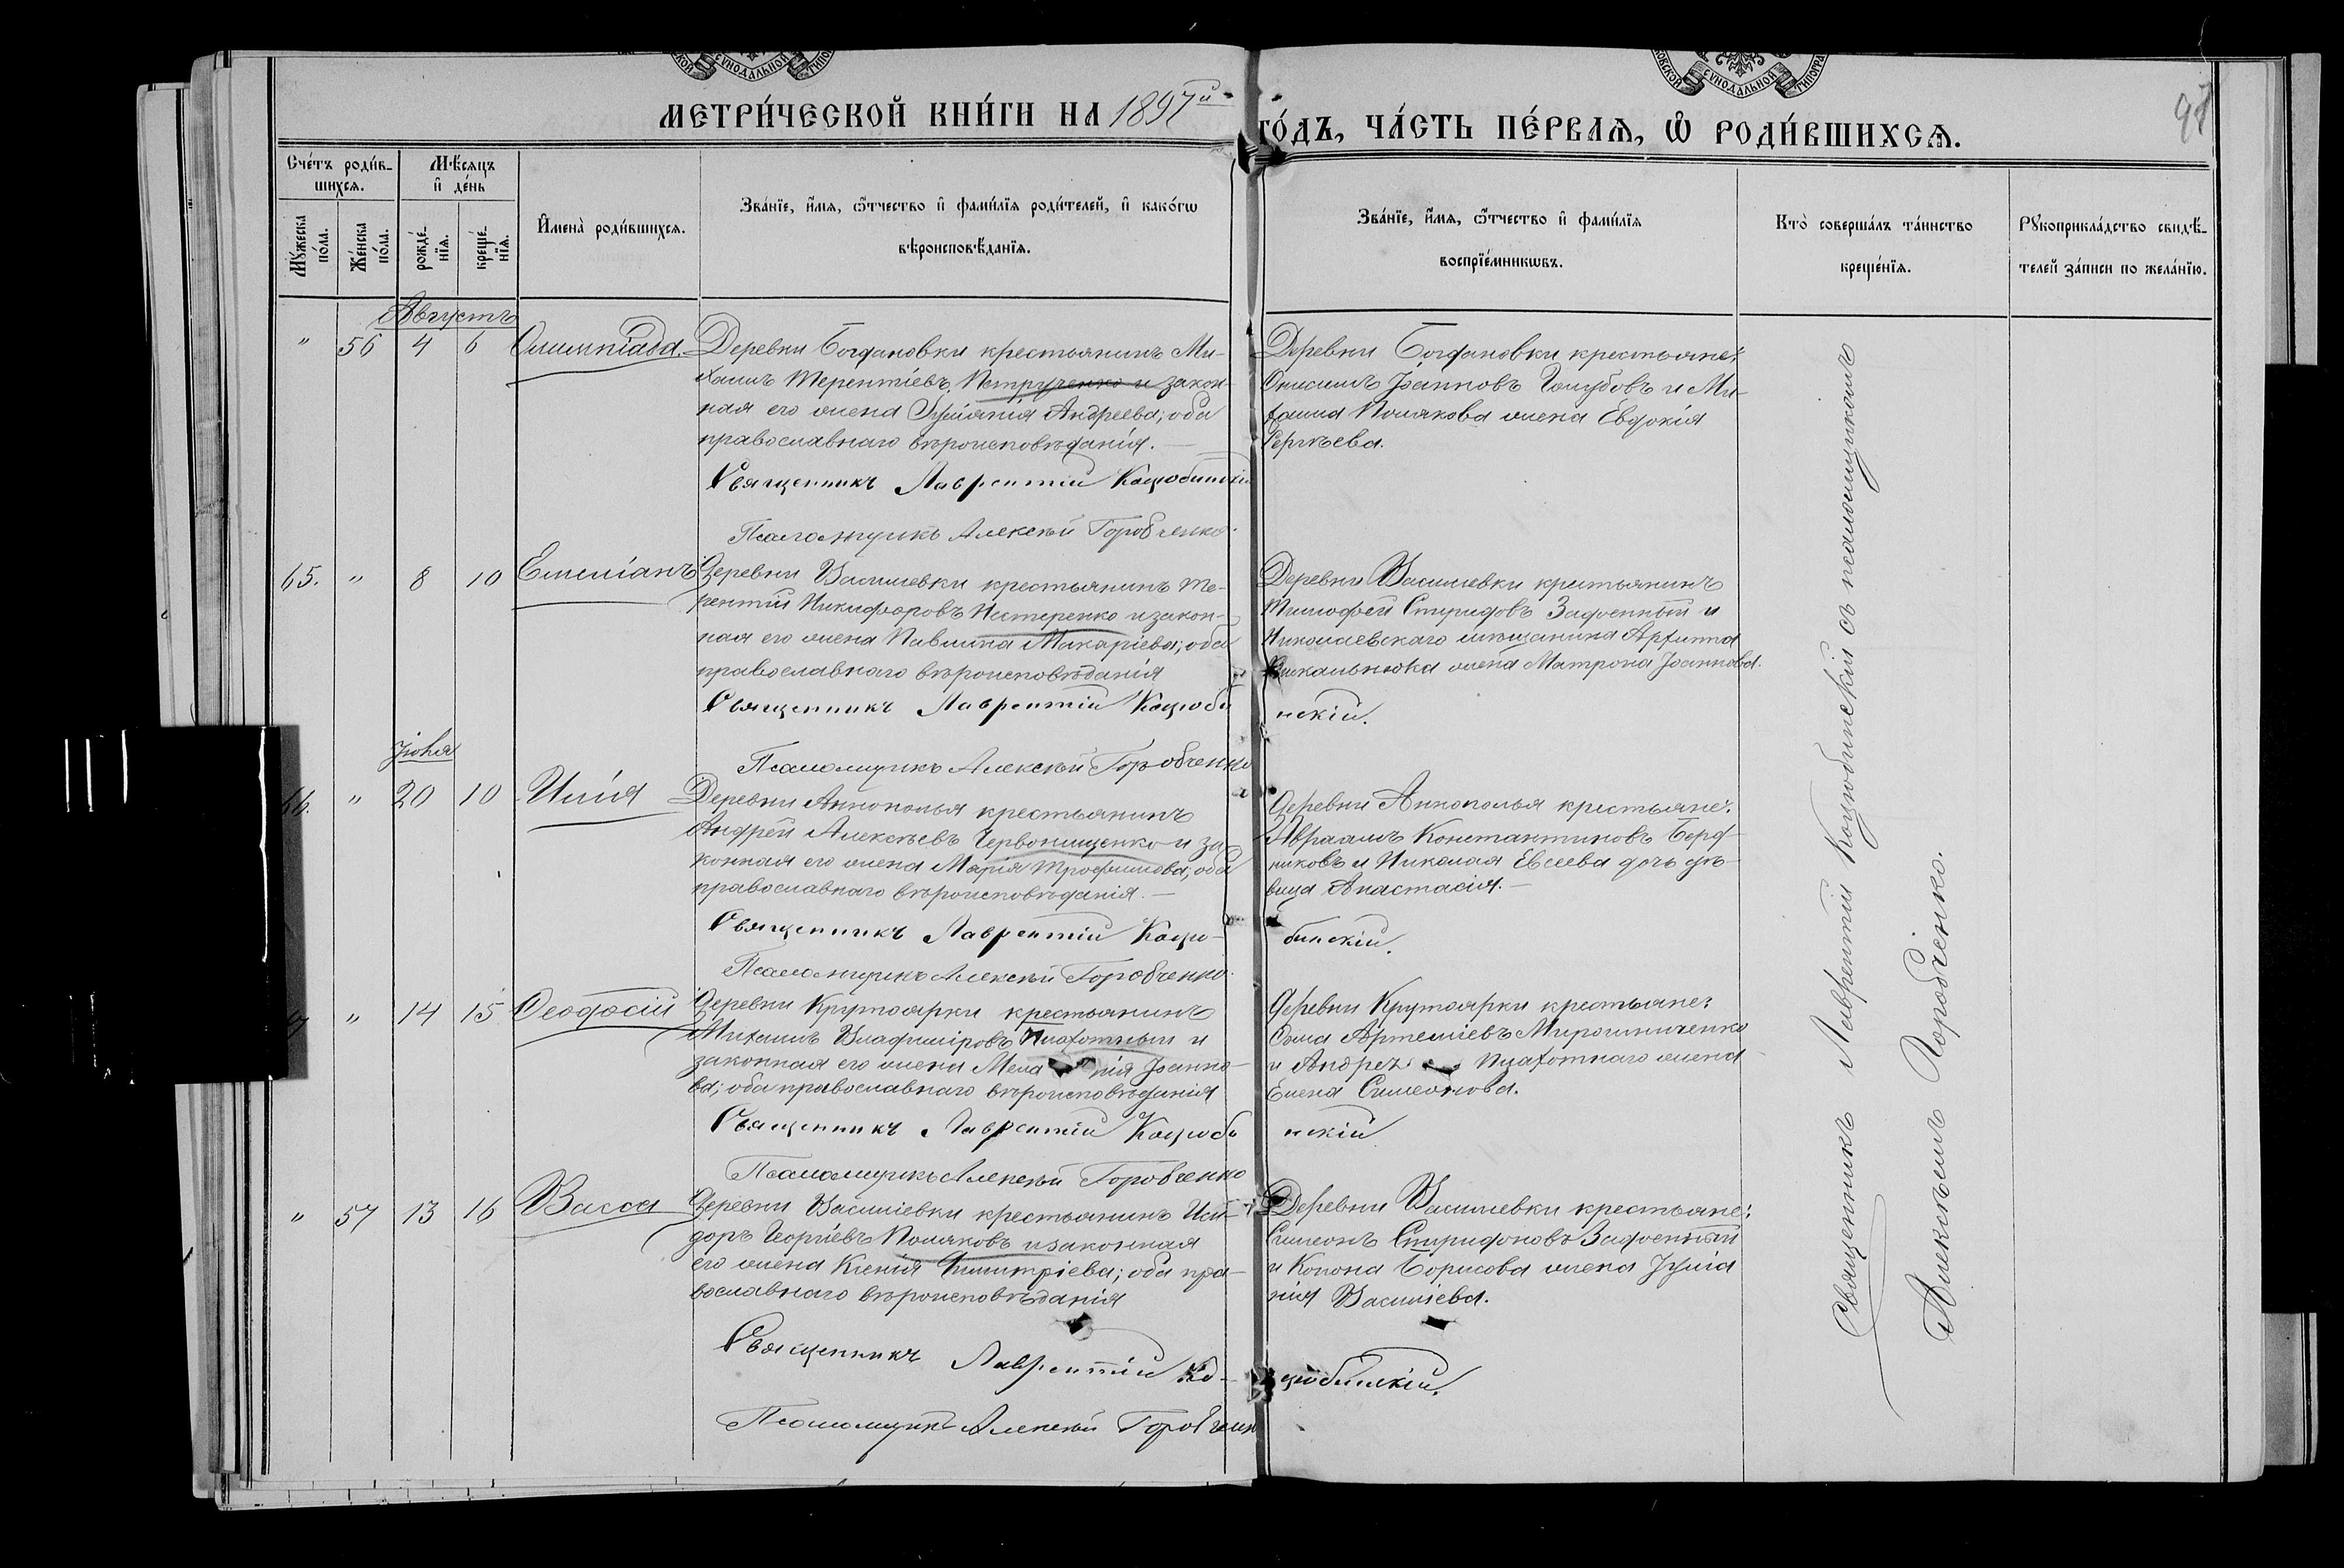 МЕТРИ́ЧЕСКОЙ КНИ́ГИ НА 1897й
ГО́ДЪ, ЧА́СТЬ ПЕ́РВАѦ, Ѡ҆ РОДИ́ВШИХСѦ.
Сче́тъ роди́в-
шихсѧ.
Мꙋ́жеска по́ла.
Же́нска по́ла.
Мѣ́сѧцъ
и҆ де́нь
рожде́-
нїѧ.
креще́-
нїѧ.
И҆мена̀ роди́вшихсѧ.
Зва́нїе, и҆́мѧ, ѻ҆́тчество и҆ фами́лїѧ роди́телей, и҆ како́гѡ
вѣроисповѣ́данїѧ.
Зва́нїе, и҆́мѧ, ѻ҆́тчество и҆ фами́лїѧ
воспрїе́мникѡвъ.
Кто̀ соверша́лъ та́инство
креще́нїѧ.
Рꙋкоприкла́дство свидѣ́-
телей за́писи по жела́нїю.
Августъ
" 56 4 6 Олимпіада.
Деревни Богдановки крестьянинъ Ми-
хаилъ Терентіевъ Петрученко и закон-
ная его жена Іуліанія Андреева; оба
православнаго вѣроисповѣданія. —
Священникъ Лаврентій Коцюбинскій
Псаломщикъ Алексѣй Горобченко.
Деревни Богдановки крестьяне:
Онисимъ Іоанновъ Голубовъ и Ми-
хаила Полякова жена Евдокія
Сергѣева.
65. " 8 10 Емеліанъ
Деревни Василиевки крестьянинъ Те-
рентій Никифоровъ Нестеренко и закон-
ная его жена Павлина Макаріева; оба
православнаго вѣроисповѣданія
Священникъ Лаврентій Коцюби
нскій.
Псаломщикъ Алексѣй Горобченко
Деревни Василиевки крестьянинъ
Тимофей Спиридовъ Задоенный и
Николаевскаго мѣщанина Архиппа
жена Матрона Іоаннова.
Іюля
66. " 20 10 Илія
Деревни Аннополья крестьянинъ
Андрей Алексѣевъ Червонищенко и за-
конная его жена Марія Трофимова; оба
православнаго вѣроисповѣданія. —
Священникъ Лаврентій Коцю-
бинскій.
Псаломщикъ Алексѣй Горобченко.
Деревни Аннополья крестьяне:
Авраамъ Константиновъ Берд-
никовъ и Николая Евсеева дочь дѣ-
вица Анастасія. —
" 14 15 Ѳеодосій
Деревни Крутоярки крестьянинъ
Михаилъ Владиміровъ Плахотный и
законная его жена Мела нія Іоанно-
ва; оба православнаго вѣроисповѣданія
Священникъ Лаврентій Коцюби
нскій
Псаломщикъ Алексѣй Горобченко
Деревни Крутоярки крестьяне:
Сила Артеміевъ Мирошниченко
и Андрея Плахотнаго жена
Елена Симеонова.
" 57 13 16 Васса
Деревни Василіевки крестьянинъ Иси-
доръ Георгіевъ Поляковъ и законная
его жена Ксенія Димитріева; оба пра-
вославнаго вѣроисповѣданія
Священникъ Лаврентій Ко-
цюбинскій.
Псаломщикъ Алексѣй Горобченк
Деревни Василиевки крестьяне:
Симеонъ Спиридоновъ Задоенный
и Конона Борисова жена Іуліа
нія Василіева.
Священникъ Лаврентій Коцюбинскій съ псаломщикомъ
Алексѣемъ Горобченко.